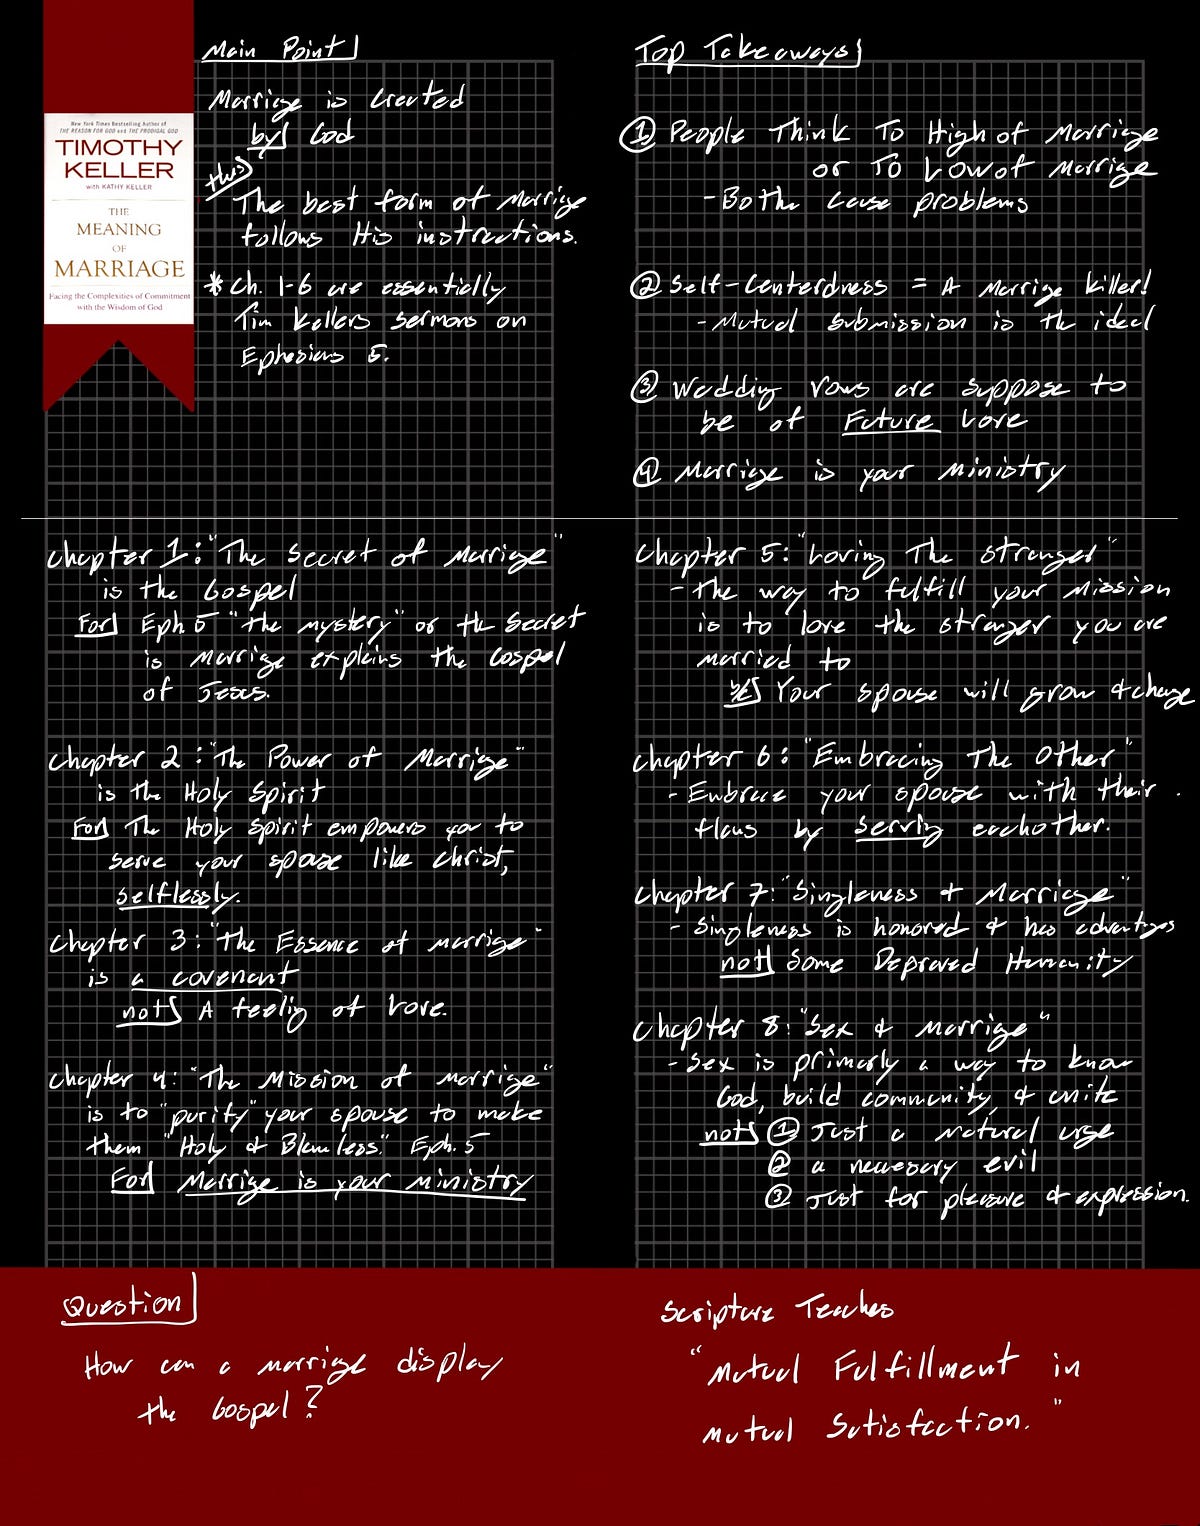 New York Times Bestselling Author of
THE REASON FOR GOD and THE PRODIGAL GOD
TIMOTHY
KELLER
with KATHY KELLER
THE
MEANING
OF
MARRIAGE
Facing the Complexities of Commitment
with the Wisdom of God
Main Point
Marriage is Created
by God
thus
The best form of Marriage
follows His instructions.
* Ch. 1-6 are essentially
Tim Kellers sermons on
Ephesians 5.
Top Takeaways
① People Think To High of Marriage
or To Low of Marriage
- Bothe cause problems
② Self-Centerdness = A Marriage killer!
- Mutual submission is the ideal
③ Wedding Vows are suppose to
be of Future Love
④ Marriage is your Ministry
Chapter 1: "The Secret of Marriage"
is the Gospel
For Eph. 5 "the mystery" or the Secret
is Marriage explains the Gospel
of Jesus.
Chapter 2: "The Power of Marriage"
is the Holy Spirit
For The Holy Spirit empowers you to
serve your spouse like Christ,
selflessly.
Chapter 3: "The Essence of marriage"
is a covenant
not A feeling of Love.
Chapter 4: "The Mission of marriage"
is to "purify" your spouse to make
them "Holy & Blameless." Eph. 5
For Marriage is your ministry
Chapter 5: "Loving The Stranger"
- The way to fulfill your Mission
is to love the stranger you are
married to
b/c Your spouse will grow & change
Chapter 6: "Embracing The Other"
- Embrace your spouse with their
flaws by serving eachother.
Chapter 7: "Singleness & Marriage"
- Singleness is honored & has advantages
not Some Depraved Humanity
Chapter 8: "Sex & Marriage"
- Sex is primarly a way to know
God, build community, & unite
not ① Just a natural urge
② a necessary evil
③ Just for pleasure & expression.
Question
How can a marriage display
the Gospel?
Scripture Teaches
"Mutual Fulfillment in
Mutual Satisfaction."